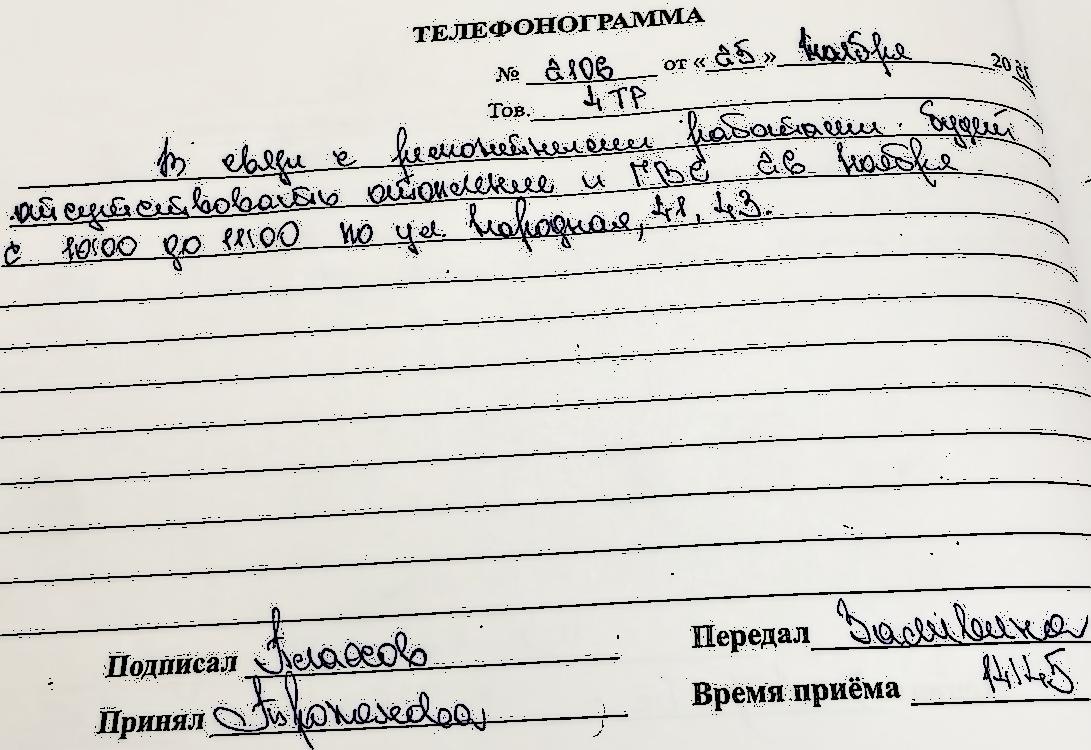 ТЕЛЕФОНОГРАММА
№ 2106 от «25» Ноября 2021
Тов. 4 ТР
В связи с ремонтными работами. Будет
отсутствовать отопление и ГВС 26 Ноября
с 10:00 до 11:00 по ул. Народная, 41, 43.
Подписал Власов
Передал
Принял
Время приёма 14:45